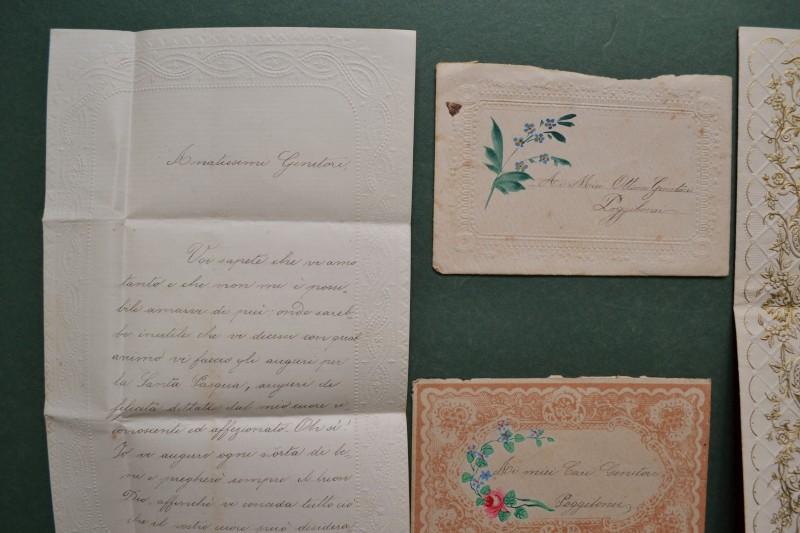 Amatissimi Genitori,
Voi sapete che vi amo
tanto e che non me è possi-
bile amarvi di più: onde sareb-
be inutile che vi dicessi con qual
animo vi faccio gli auguri per
la Santa Pasqua, auguri di
felicità dettati dal mio cuore ri-
conoscente ed affezionato. Oh sì!
Io vi auguro ogni sorta di be-
ne e pregherò sempre il buon
Dio, affinché vi conceda tutto ciò
che il vostro cuore può desidera
Ai Miei Ottimi Genitori
Poggibonsi
Ai miei Cari Genitori
Poggibonsi